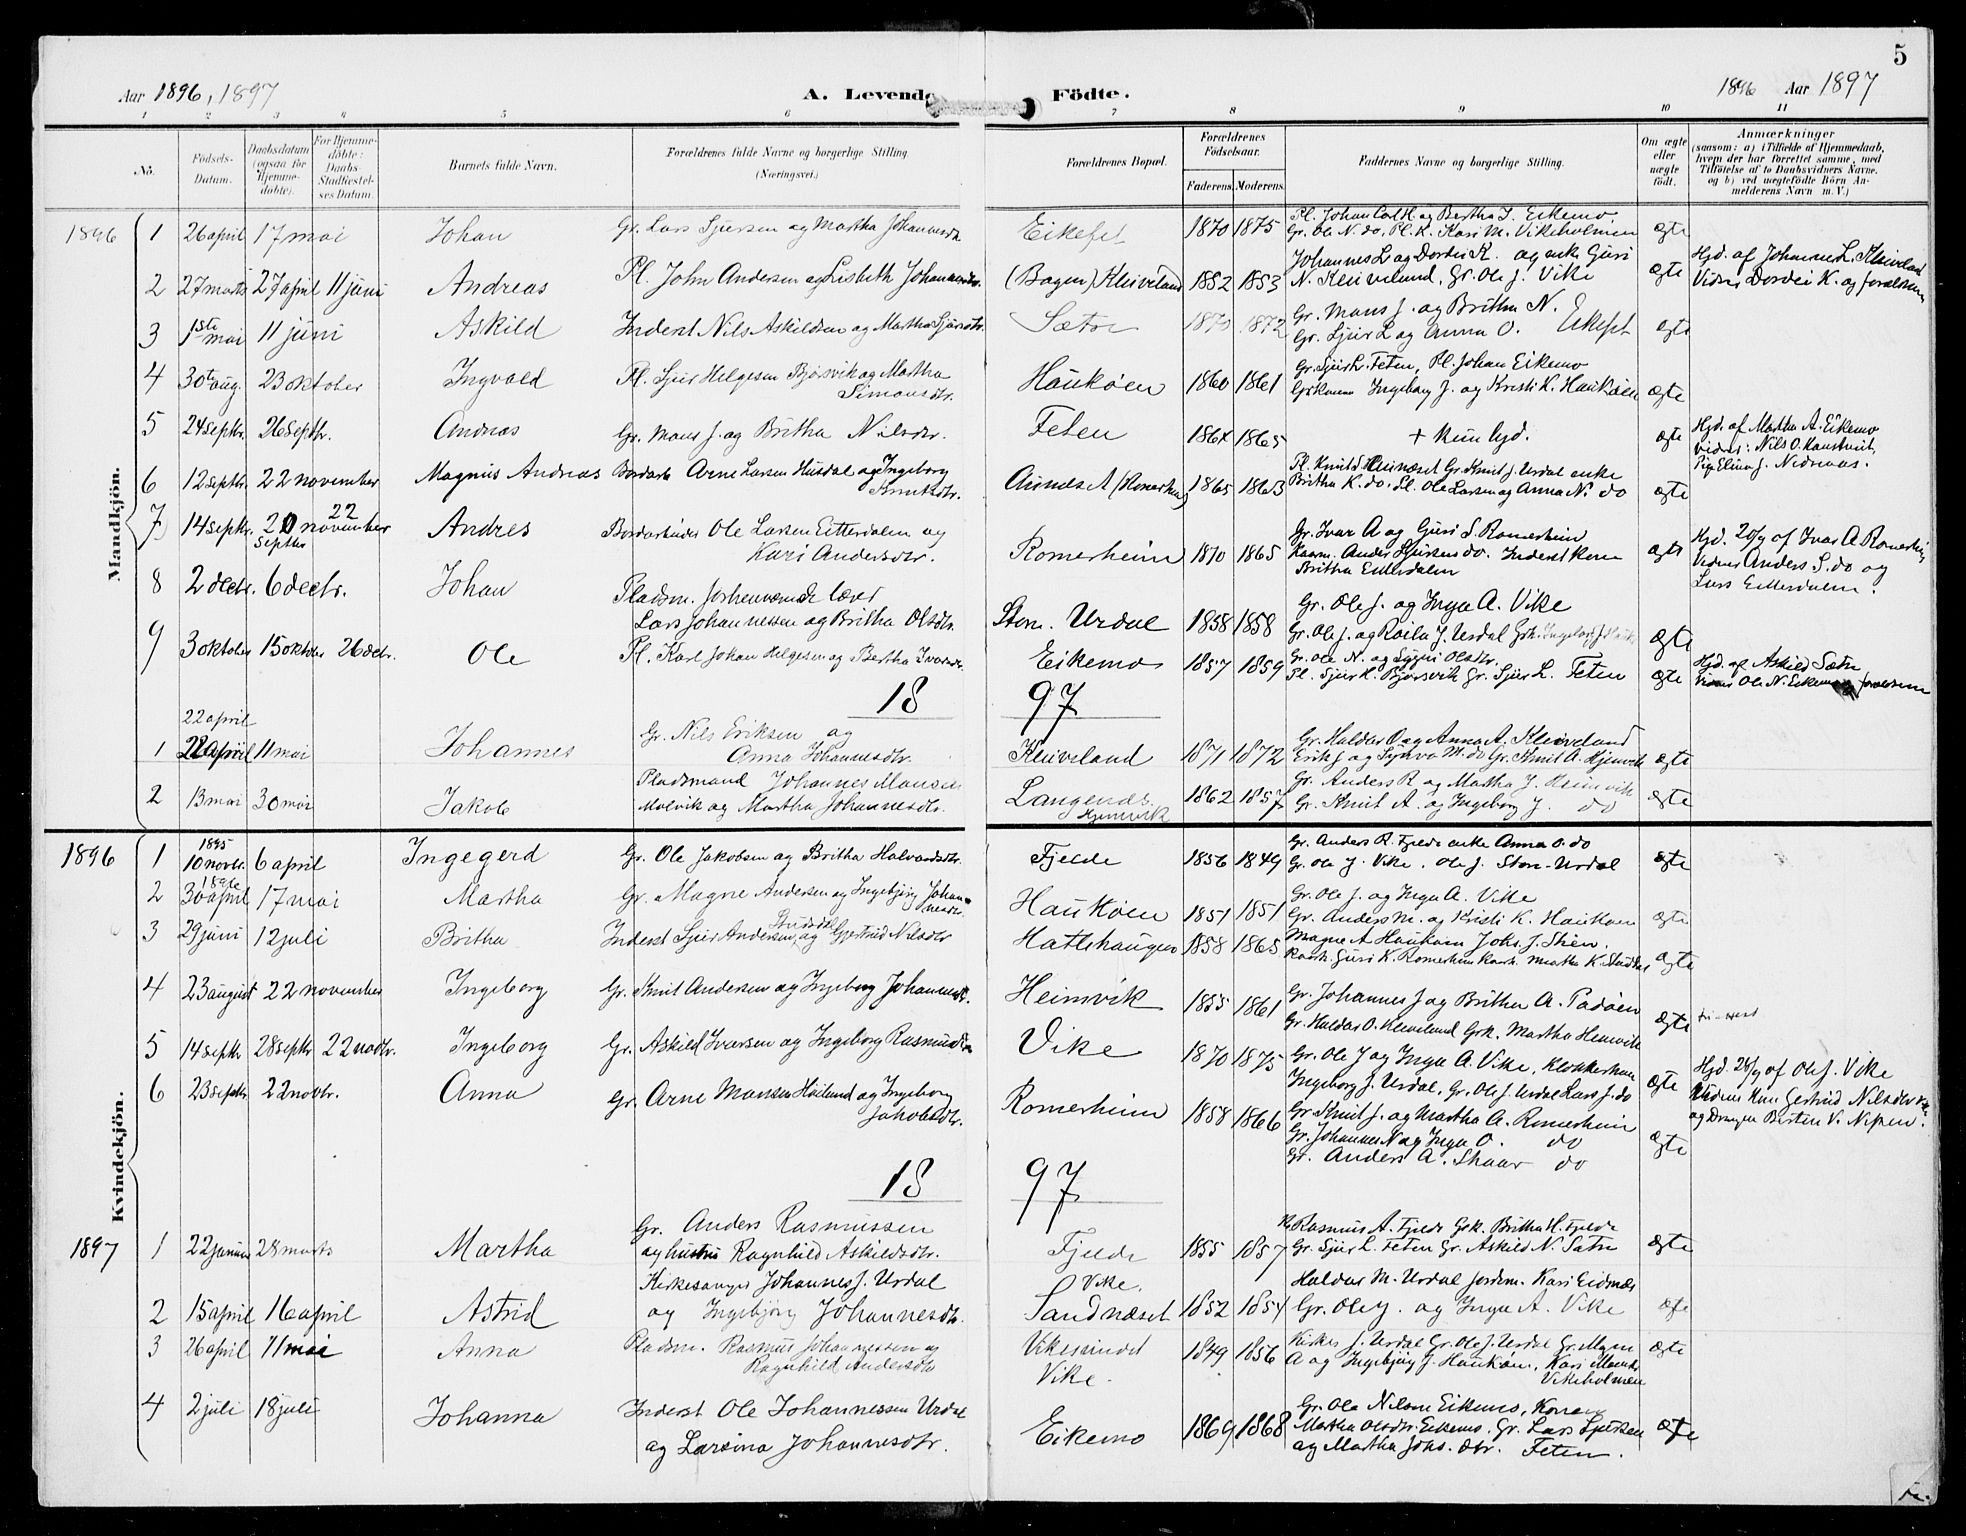 5
Aar 1896, 1897
A. Levende Födte.
1896 Aar 1897
1 2 3 4 5 6 7 8 9 10 11
No.
Födsels-Datum.
Daabsdatum (ogsaa for Hjemmedöbte).
For Hjemmedöbte: Daabs-Stadfæstelses Datum.
Barnets fulde Navn.
Forældrenes fulde Navne og borgerlige Stilling. (Næringsvei.)
Forældrenes Bopæl.
Forældrenes Födselsaar.
Faderens. Moderens.
Faddernes Navne og borgerlige Stilling.
Om ægte eller uægte födt.
Anmærkninger (saasom: a) i Tilfælde af Hjemmedaab, hvem der har forrettet samme, med Tilföielse af to Daabsvidners Navne. og b) ved uægtefödte Börn Anmelderens Navn m. V.)
Mandkjön.
1896 1 26 april 17 mai Johan Gr. Lars Sjursen og Martha Johannesdtr. Eikefet 1870 1875 Pl. Johan Carl H. og Bertha I. Eikemo. Gr. Ole N. do, Pl. K. Kari M. Vikeholmen ægte
2 27 marts 27 april 11 juni Andreas Pl. John Andersen og Lisbeth Johannesdtr. (Bagen) Kleiveland 1852 1853 Johannes L og Dordei K. og enke Guri N. Kleiveland, Gr. Ole J. Vike ægte Hjd. af Johannes L. Kleiveland Vidner Dordei K. og forældrene
3 1ste mai 11 juni Askild Inderst Nils Askildsen og Martha Sjursdtr. Sætre 1870 1872 Gr. Mons J. og Britha N. Gr. Sjur L og Anna O. Eikefet ægte
4 30te aug. 23 oktober Ingvald Pl. Sjur Helgesen Bjørsvik og Martha Simonsdtr. Haukøen 1860 1861 Gr. Sjur L. Feten, Pl. Johan Eikemo Grkone Ingeborg J. og Kristi K. Haukøen ægte
5 24 septbr. 26 septbr. Andreas Gr. Mons J. og Britha Nilsdtr. Feten 1864 1865 + kun hjd. ægte Hjd. af Martha A. Eikemo vidner: Nils O. Pige Elina J. Nedreaas.
6 12 septbr. 22 november Magnus Andreas Arne Larsen Husdal og Ingeborg Knutsdtr. (Romerheim) 1865 1863 Pl. Knut S. Gr. Knut J. Urdal enke Britha K. do, Pl. Ole Larsen og Anna N. do ægte
7 14 septbr. 20 septbr 22 november Andres Bordarbeider Ole Larsen Eitterdalen og Kari Andersdtr. Romerheim 1870 1865 Gr. Ivar A og Guri S. Romerheim Anders Sjursen do. Inderstkone Britha Eitterdalen ægte Hjd. 20/9 af Ivar A Romerheim Vidner Anders S. do og Lars Eitterdalen.
8 2 decbr. 6 decbr. Johan Pladsm. forhenværende lærer Lars Johannessen og Britha Olsdtr. Store Urdal 1858 1858 Gr. Ole J. og Inga A. Vike Gr. Ole J. og Roela J. Urdal Grk. Ingeborg J. ægte
9 3 oktober 15 oktober 26 decbr. Ole Pl. Karl Johan Helgesen og Bertha Ivarsdtr. Eikemo 1857 1859 Gr. Ole N. og Olsdtr. Pl. Sjur H. Bjørsvik Gr. Sjur L. Feten ægte Hjd. af Askild Sætre Vidner Ole N. Eikemo og forældrene
18 97
1 22 april 11 mai Johannes Gr. Nils Eriksen og Anna Johannesdtr. Kleiveland 1871 1872 Gr. Haldor O. og Anna A. Kleiveland Erik J og Synva M. do Gr. Knut A. Hjemvik ægte
2 13 mai 30 mai Jakob Pladsmand Johannes Monsen Molvik og Martha Johannesdtr. Hjemvik 1862 1857 Gr. Anders R og Martha J. Heimvik Gr. Knut A. og Ingeborg J. do ægte
Kvindekjön.
1896 1 1895 10 novbr. 6 april Ingegerd Gr. Ole Jakobsen og Britha Halvardsdtr. Fjelde 1856 1849 Gr. Anders R. Fjelde enke Anna O. do Gr. Ole J. Vike. Ole J. Store-Urdal ægte
2 1896 30 april 17 mai Martha Gr. Magne Andersen og Ingebjørg Johannesdtr. Haukøen 1851 1851 Gr. Ole J. og Inga A. Vike Gr. Anders M. og Kristi K. Haukøen ægte
3 29 juni 12 juli Britha Inderst Sjur Andersen og Gjertrud Nilsdtr Hatleshaugen 1858 1865 Magne A Haukøen Johs. J. Guri K. Romerheim Martha K. ægte
4 23 august 22 november Ingeborg Gr. Knut Andersen og Ingeborg Johannesdtr. Heimvik 1855 1861 Gr. Johannes J og Britha A. Padøen Gr. Haldor O. Kleiveland Grk. Martha Heimvik ægte
5 14 septbr 28 septbr 22 novbr. Ingeborg Gr. Askild Ivarsen og Ingeborg Rasmusdtr Vike 1870 1875 Gr. Ole J og Inga A. Vike, Klokkerkone Ingeborg J. Urdal, Gr. Ole J. Urdal Lars J. do ægte Hjd. 28/9 af Ole J. Vike Vidner Gertrud Nilsdtr og Drengen V. Nipen.
6 23 septbr 22 novbr. Anna Gr. Arne Monsen Høiland og Ingeborg Jakobsdtr. Romerheim 1858 1866 Gr. Knut J. og Martha A. Romerheim Gr. Johannes N og Inga O. do Gr. Anders A. Skaar do ægte
18 97
1897 1 22 januar 28 marts Martha Gr. Anders Rasmussen og hustru Ragnhild Askildsdtr. Fjelde 1855 1857 Rasmus A. Fjelde Grk. Britha H. Fjelde Gr. Sjur L. Feten Gr. Askild N. Sætre ægte
2 15 april 16 april Astrid Kirkesanger Johannes J. Urdal og Ingebjørg Johannesdtr. Vike. Sandnæset 1852 1854 Haldor M. Urdal Jordem. Kari Eidnæs Gr. Ole J. og Inga A. Vike ægte
3 26 april 11 mai Anna Pladsm. Rasmus Johannessen og Ragnhild Andersdtr Vikesundet Vike. 1849 1856 Kirkes. J. Urdal Gr. Ole J. Urdal Gr. Magne A og Ingebjørg J. Haukøen, Kari Vikeholmen ægte
4 2 juli 18 juli Johanna Inderst Ole Johannessen Urdal og Larsina Johannesdtr. Eikemo 1869 1868 Gr. Ole Nilsen Eikemo, Konen Martha Olsdtr. Eikemo. Gr. Lars Sjursen og Martha Johs. dtr. Feten. ægte